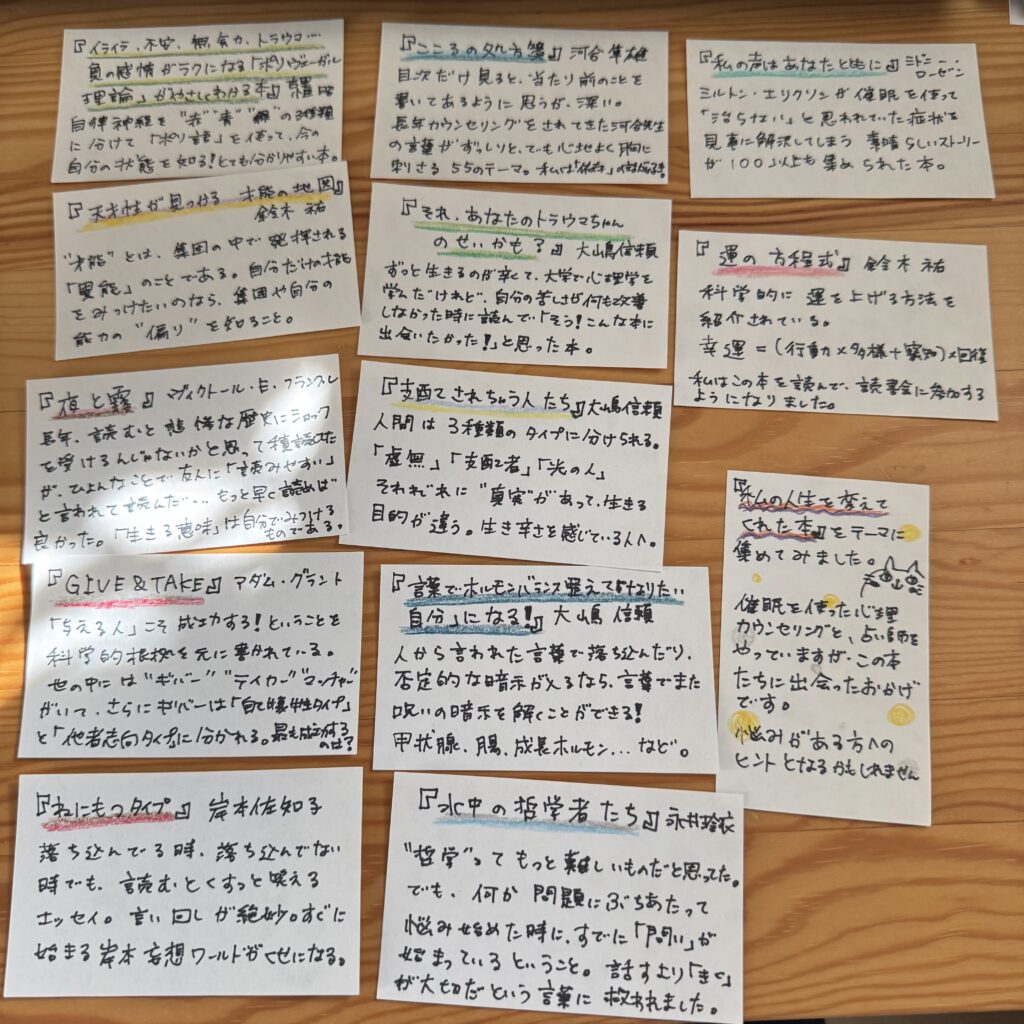 『イライラ、不安、無気力、トラウマ…
負の感情がラクになる「ポリヴェーガル
理論」がやさしくわかる本』
自律神経を "赤" "青" "緑" の3種類
に分けて「ポリ語」を使って、今の
自分の状態を知る！とても分かりやすい本。
『天才性が見つかる 才能の地図』
鈴木 祐
"才能"とは、集団の中で発揮される
「異能」のことである。自分だけの才能
をみつけたいのなら、集団や自分の
能力の"偏り"を知ること。
『夜と霧』 ヴィクトール・E・フランクル
長年、読むと悲惨な歴史にショック
を受けるんじゃないかと思って積読してた
が、ひょんなことで友人に「読みやすい」
と言われて読んだ…もっと早く読めば
良かった。「生きる意味」は自分でみつける
ものである。
『GIVE & TAKE』 アダム・グラント
「与える人」こそ成功する！ということを
科学的根拠を元に書かれている。
世の中には"ギバー""テイカー""マッチャー"
がいて、さらにギバーは「自己犠牲タイプ」
と「他者志向タイプ」に分かれる。最も成功する
のは？
『ねにもつタイプ』 岸本佐知子
落ち込んでる時、落ち込んでない
時でも、読むとくすっと笑える
エッセイ。言い回しが絶妙。すぐに
始まる岸本妄想ワールドがくせになる。
『こころの処方箋』 河合隼雄
目次だけ見ると、当たり前のことを
書いてあるように思うが、深い。
長年カウンセリングをされてきた河合先生
の言葉がずっしりと、でも心地よく胸に
刺さる 55のテーマ。
『それ、あなたのトラウマちゃん
のせいかも？』 大嶋信頼
ずっと生きるのが辛くて、大学で心理学を
学んだけれど、自分の苦しさが何も改善
しなかった時に読んで「そう！こんな本に
出会いたかった！」と思った本。
『支配されちゃう人たち』 大嶋信頼
人間は3種類のタイプに分けられる。
「虚無」「支配者」「光の人」
それぞれに"真実"があって、生きる
目的が違う。生き辛さを感じている人へ。
『言葉でホルモンバランス整えて「なりたい
自分」になる！』 大嶋 信頼
人から言われた言葉で落ち込んだり、
否定的な暗示が入るなら、言葉でまた
呪いの暗示を解くことができる！
甲状腺、腸、成長ホルモン…など。
『水中の哲学者たち』 永井玲衣
"哲学"ってもっと難しいものだと思ってた。
でも、何か問題にぶちあたって
悩み始めた時に、すでに「問い」が
始まっているということ。話すより「きく」
が大切だという言葉に救われました。
『私の声はあなたとともに』 シドニー・
ローゼン
ミルトン・エリクソンが催眠を使って
「治らない」と思われていた症状を
見事に解決してしまう 素晴らしいストーリー
が100以上も集められた本。
『運の方程式』 鈴木 祐
科学的に運を上げる方法を
紹介されている。
幸運＝(行動×多様＋察知)×回復
私はこの本を読んで、読書会に参加する
ようになりました。
『私の人生を変えて
くれた本』をテーマに
集めてみました。
催眠を使った心理
カウンセリングと、占い師を
やっていますが、この本
たちに出会ったおかげ
です。
悩みがある方への
ヒントとなるかもしれません